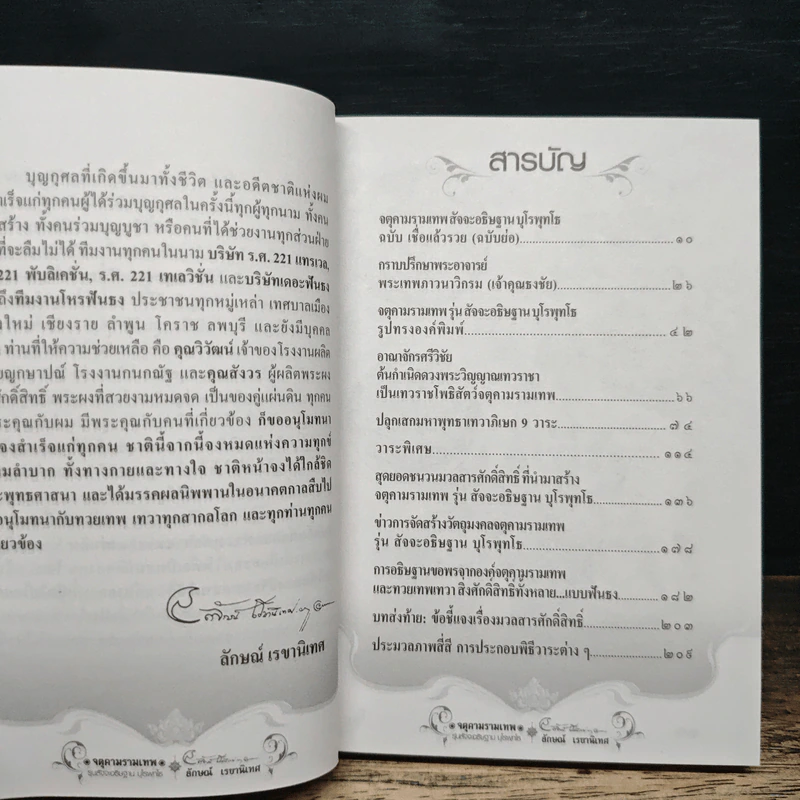 บุญกุศลที่เกิดขึ้นมาทั้งชีวิต และอดีตชาติแห่งผม
ำเร็จแก่ทุกคนผู้ได้ร่วมบุญกุศลในครั้งนี้ทุกผู้ทุกนาม ทั้งคน
สร้าง ทั้งคนร่วมบุญบูชา หรือคนที่ได้ช่วยงานทุกส่วนฝ่าย
ที่จะลืมไม่ได้ ทีมงานทุกคนในนาม บริษัท ร.ศ. 221 แทรเวล,
221 พับลิเคชั่น, ร.ศ. 221 เทเลวิชั่น และบริษัทเดอะฟันธง
ถึงทีมงานโหรฟันธง ประชาชนทุกหมู่เหล่า เทศบาลเมือง
งใหม่ เชียงราย ลำพูน โคราช ลพบุรี และยังมีบุคคล
ท่านที่ให้ความช่วยเหลือ คือ คุณวิวัฒน์ เจ้าของโรงงานผลิต
ยญกษาปณ์ โรงงานกนกณัฐ และคุณสังวร ผู้ผลิตพระผง
ศักดิ์สิทธิ์ พระผงที่สวยงามหมดจด เป็นของคู่แผ่นดิน ทุกคน
ระคุณกับผม มีพระคุณกับคนที่เกี่ยวข้อง ก็ขออนุโมทนา
จงสำเร็จแก่ทุกคน ชาตินี้จากนี้จงหมดแห่งความทุกข์
ามลำบาก ทั้งทางกายและทางใจ ชาติหน้าจงได้ใกล้ชิด
ะพุทธศาสนา และได้มรรคผลนิพพานในอนาคตกาลสืบไป
อนุโมทนากับทวยเทพ เทวาทุกสากลโลก และทุกท่านทุกคน
กี่ยวข้อง
ลักษณ์ เรขานิเทศ
จตุคามรามเทพ
รุ่นสัจจะอธิษฐาน บุโรพุทโธ
ลักษณ์ เรขานิเทศ
สารบัญ
จตุคามรามเทพ สัจจะอธิษฐาน บุโรพุทโธ
ฉบับ เชื่อแล้วรวย (ฉบับย่อ)..............................๑๐
กราบปรึกษาพระอาจารย์
พระเทพภาวนาวิกรม (เจ้าคุณธงชัย)......................๒๖
จตุคามรามเทพ รุ่น สัจจะอธิษฐาน บุโรพุทโธ
รูปทรงองค์พิมพ์..............................๔๒
อาณาจักรศรีวิชัย
ต้นกำเนิดดวงพระวิญญาณเทวราชา
เป็นเทวราชโพธิสัตว์จตุคามรามเทพ......................๖๖
ปลุกเสกมหาพุทธาเทวาภิเษก 9 วาระ..............๗๔
วาระพิเศษ..............................๑๑๔
สุดยอดชนวนมวลสารศักดิ์สิทธิ์ ที่นำมาสร้าง
จตุคามรามเทพ รุ่น สัจจะอธิษฐาน บุโรพุทโธ..............๑๓๖
ข่าวการจัดสร้างวัตถุมงคลจตุคามรามเทพ
รุ่น สัจจะอธิษฐาน บุโรพุทโธ......................๑๗๘
การอธิษฐานขอพรจากองค์จตุคามรามเทพ
และทวยเทพเทวา สิ่งศักดิ์สิทธิ์ทั้งหลาย...แบบฟันธง..........๑๘๒
บทส่งท้าย: ข้อชี้แจงเรื่องมวลสารศักดิ์สิทธิ์..............๒๐๓
ประมวลภาพสี่สี การประกอบพิธีวาระต่าง ๆ..............๒๐๙
จตุคามรามเทพ
รุ่นสัจจะอธิษฐาน บุโรพุทโธ
ลักษณ์ เรขานิเทศ